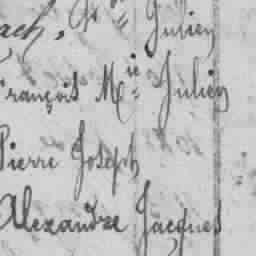 ach, Js Julien
François Mie Julien
Pierre Joseph
Alexandre Jacques